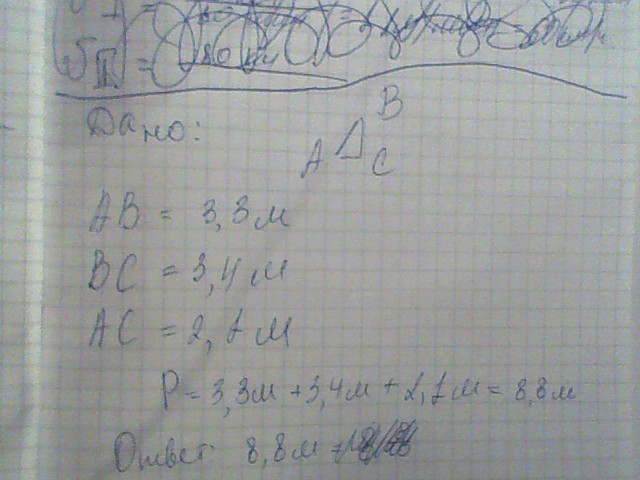 Дано:
B
A
C
AB = 3,3м
BC = 3,4м
AC = 2,1м
P = 3,3м + 3,4м + 2,1м = 8,8м
Ответ 8,8м =